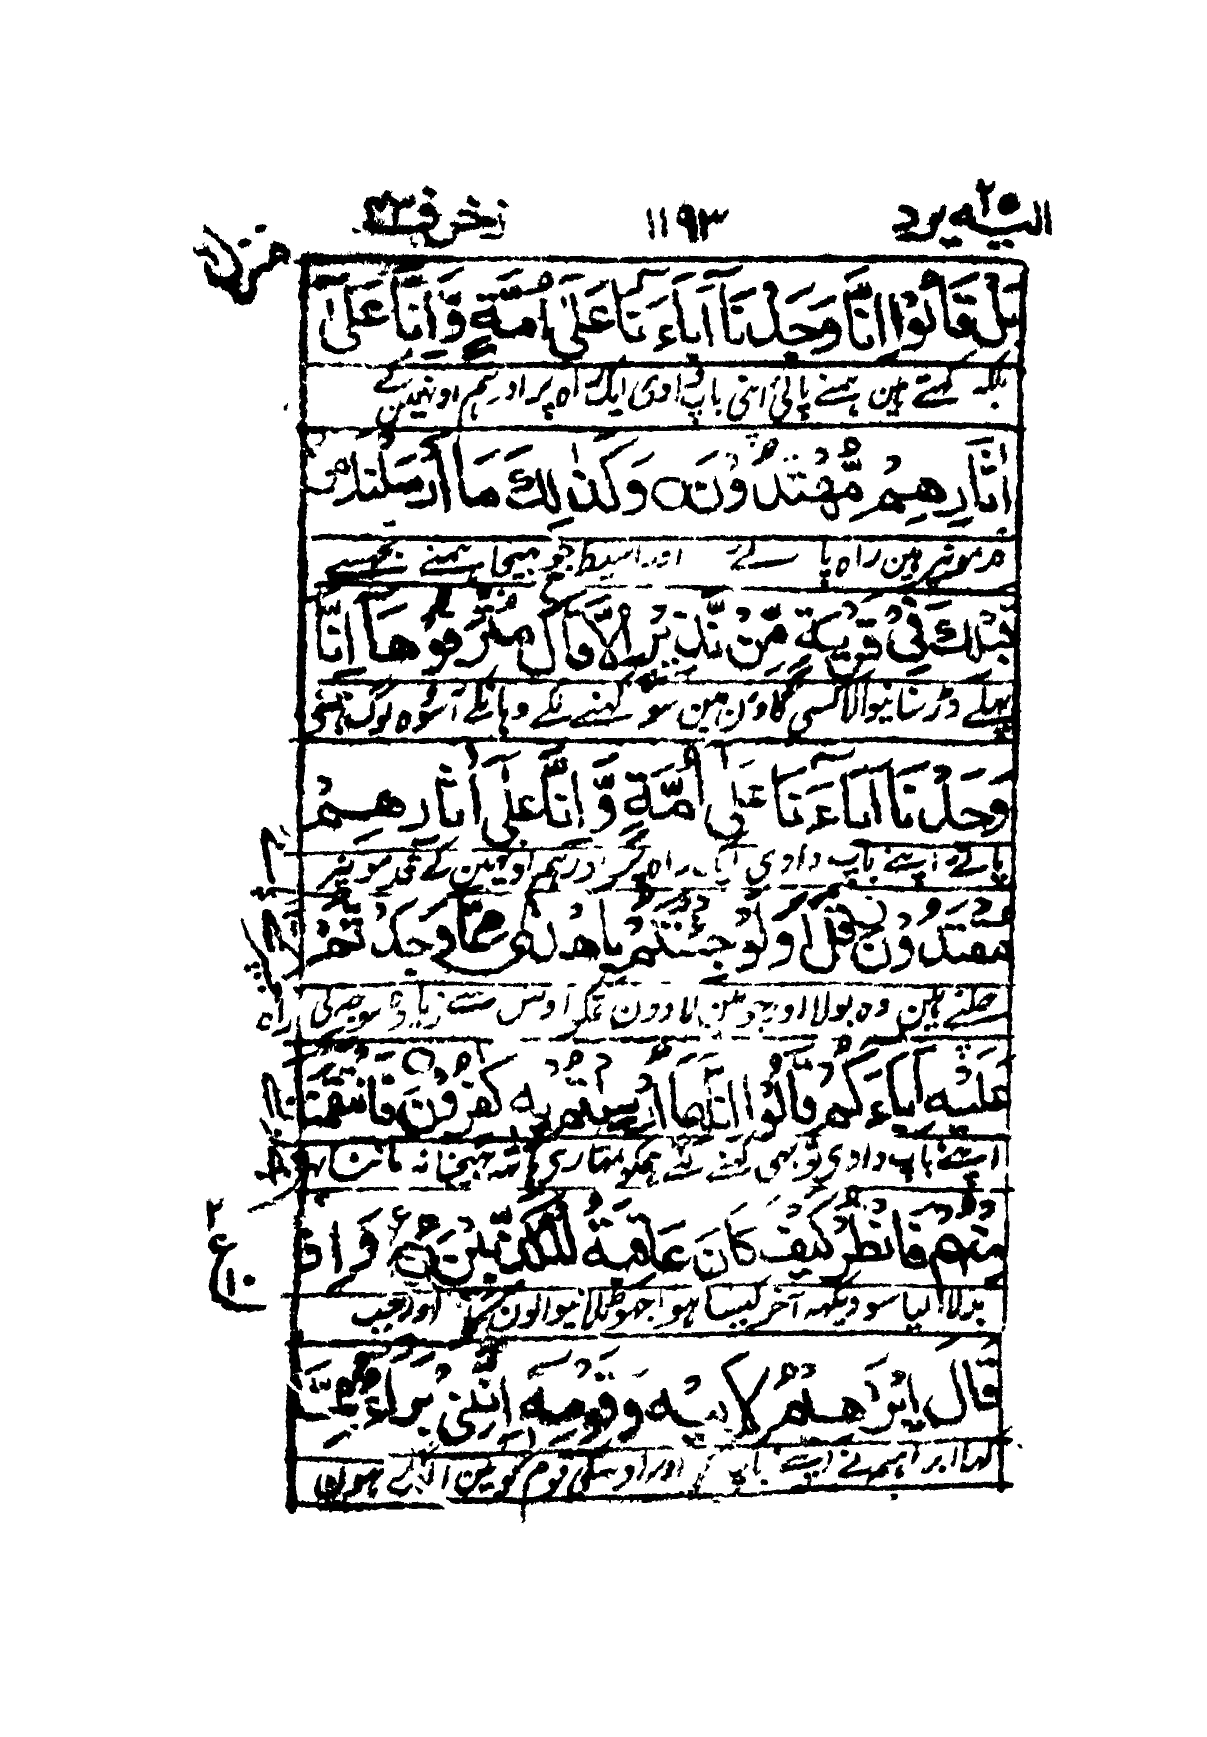 الیه یرد ٢٥ ١١٩٣ زخرف ٤٣
منزل
بَلْ قَالُوْا اِنَّا وَجَدْنَا اٰبَاءَنَا عَلٰى اُمَّةٍ وَّاِنَّا عَلٰى
بلکہ کہتے ہین ہمنے پائی اپنی باپ دادی ایک راہ پر اور ہم اونہین کے
اٰثَارِهِمْ مُّهْتَدُوْنَ وَكَذٰلِكَ مَا اَرْسَلْنَا مِنْ
قدمونپر ہین راہ پا اور اسیطرح جو بھیجا ہمنے تجھسے
قَبْلِكَ فِيْ قَرْيَةٍ مِّنْ نَّذِيْرٍ اِلَّا قَالَ مُتْرَفُوْهَا اِنَّا
پہلے ڈر سنانیوالا کسی گاون مین سو کہنے لگے وہانکے آسودہ لوگ ہمنی
وَجَدْنَا اٰبَاءَنَا عَلٰى اُمَّةٍ وَّاِنَّا عَلٰى اٰثَارِهِمْ
پائے اپنے باپ دادی ایک راہ پر اور ہم اونہین کے قدمونپر
مُقْتَدُوْنَ قٰلَ اَوَلَوْ جِئْتُكُمْ بِاَهْدٰى مِمَّا وَجَدْتُّمْ
چلتے ہین وہ بولا اور جو مین لا دون تمکو اوس سے زیادہ سوجھ کی راہ
عَلَيْهِ اٰبَاءَكُمْ قَالُوْا اِنَّا بِمَا اُرْسِلْتُمْ بِهٖ كٰفِرُوْنَ فَانْتَقَمْنَا
اپنے باپ دادی تو بھی کہنے لگے ہمکو تمہاری ہاتھ بھیجا نہ ماننا
مِنْهُمْ فَانْظُرْ كَيْفَ كَانَ عَاقِبَةُ الْمُكَذِّبِيْنَ وَاِذْ
بدلا لیا سو دیکھہ آخر کیسا ہوا جھوٹلانیوالون کا اور جب
قَالَ اِبْرٰهِيْمُ لِاَبِيْهِ وَقَوْمِهٖ اِنَّنِيْ بَرَاءٌ مِّمَّا
کہا ابراہیم نے اپنے باپ کو اور اوسکی قوم کو مین الگ ہون
٢
ع
١٠